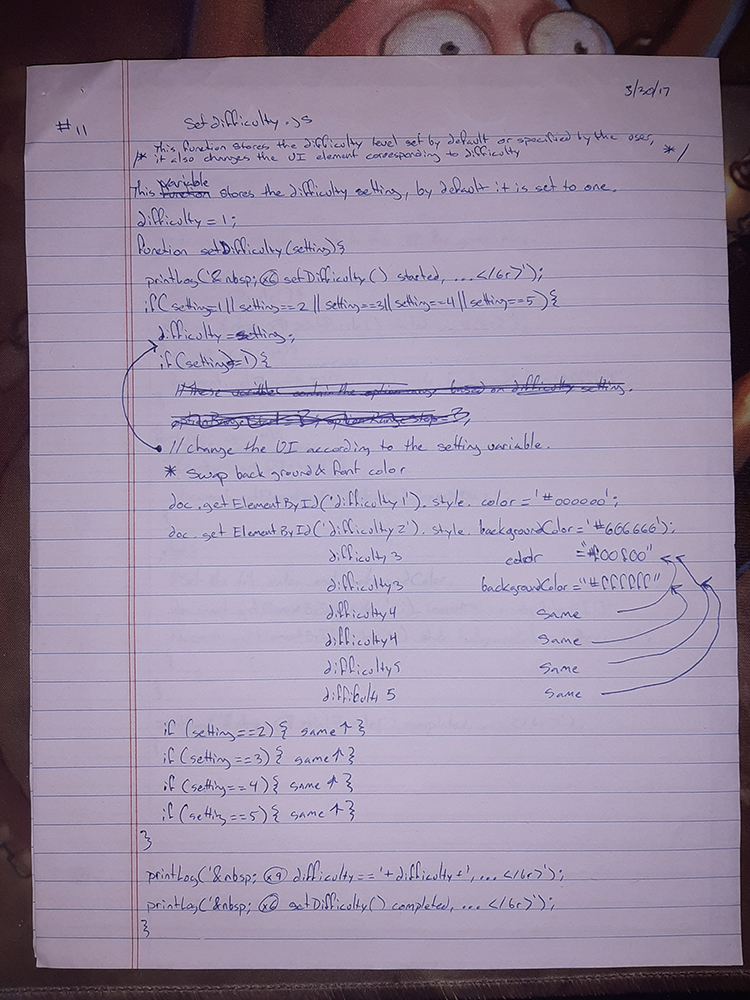 3/30/17
#11 Setdifficulty.js
/* This function stores the difficulty level set by default or specified by the user,
it also changes the UI element corresponding to difficulty */
variable
This function stores the difficulty setting, by default it is set to one.
difficulty = 1;
function setDifficulty(setting){
printLog('&nbsp; x6 setDifficulty() started, ... </br>');
if(setting=1 || setting==2 || setting==3 || setting==4 || setting==5){
difficulty = setting;
if(setting==1){
// these variables contain the option range based on difficulty setting.
optionRangeStart = 3; optionRangeStop = 3;
// change the UI according to the setting variable.
* Swap back ground & font color
doc.getElementById('difficulty1').style.color = '#000000';
doc.getElementById('difficulty2').style.backgroundColor='#606060');
difficulty3 color ="#00ff00"
difficulty3 backgroundColor="#ffffff"
difficulty4 same
difficulty4 same
difficulty5 same
difficulty 5 same
if (setting==2){ same↑}
if(setting==3){ same↑}
if(setting==4){ same↑}
if(setting==5){ same↑}
}
printLog('&nbsp; x9 difficulty=='+difficulty+',... </br>');
printLog('&nbsp; x6 setDifficulty() completed, ... </br>');
}